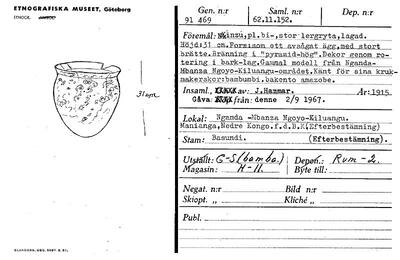 ETNOGRAFISKA MUSEET, Göteborg
ETNOGR. AVD.
31 cm
GLANDERS, GBG.
Gen. n:r
Saml. n:r
Dep. n:r
91 469
62.11.152.
Föremål: Nkinzu, pl. bi-, stor lergryta, lagad.
Höjd:31 cm. Formsom ett avsågat ägg, med stort
brätte. Bränning i "pyramid-hög". Dekor genom ro-
tering i bark-lag. Gammal modell från Nganda-
Mbanza Ngoyo-Kiluangu-området. Känt för sina kruk-
makerskor: bambumbi, bakento amazobe.
Insaml. av: J. Hammar.
År: 1915.
Gåva från: denne 2/9 1967.
Lokal: Nganda -Mbanza Ngoyo-Kiluangu.
Manianga, Nedre Kongo. f.d.B.K (Efterbestämning)
Stam: Basundi. (Efterbestämning).
Utställt: G-S (bamba.) Depon.: Rum-2.
Magasin: H-11. Byte till:
Negat. n:r
Bild n:r
Skiopt. n:r
Kliché n:r
Publ.